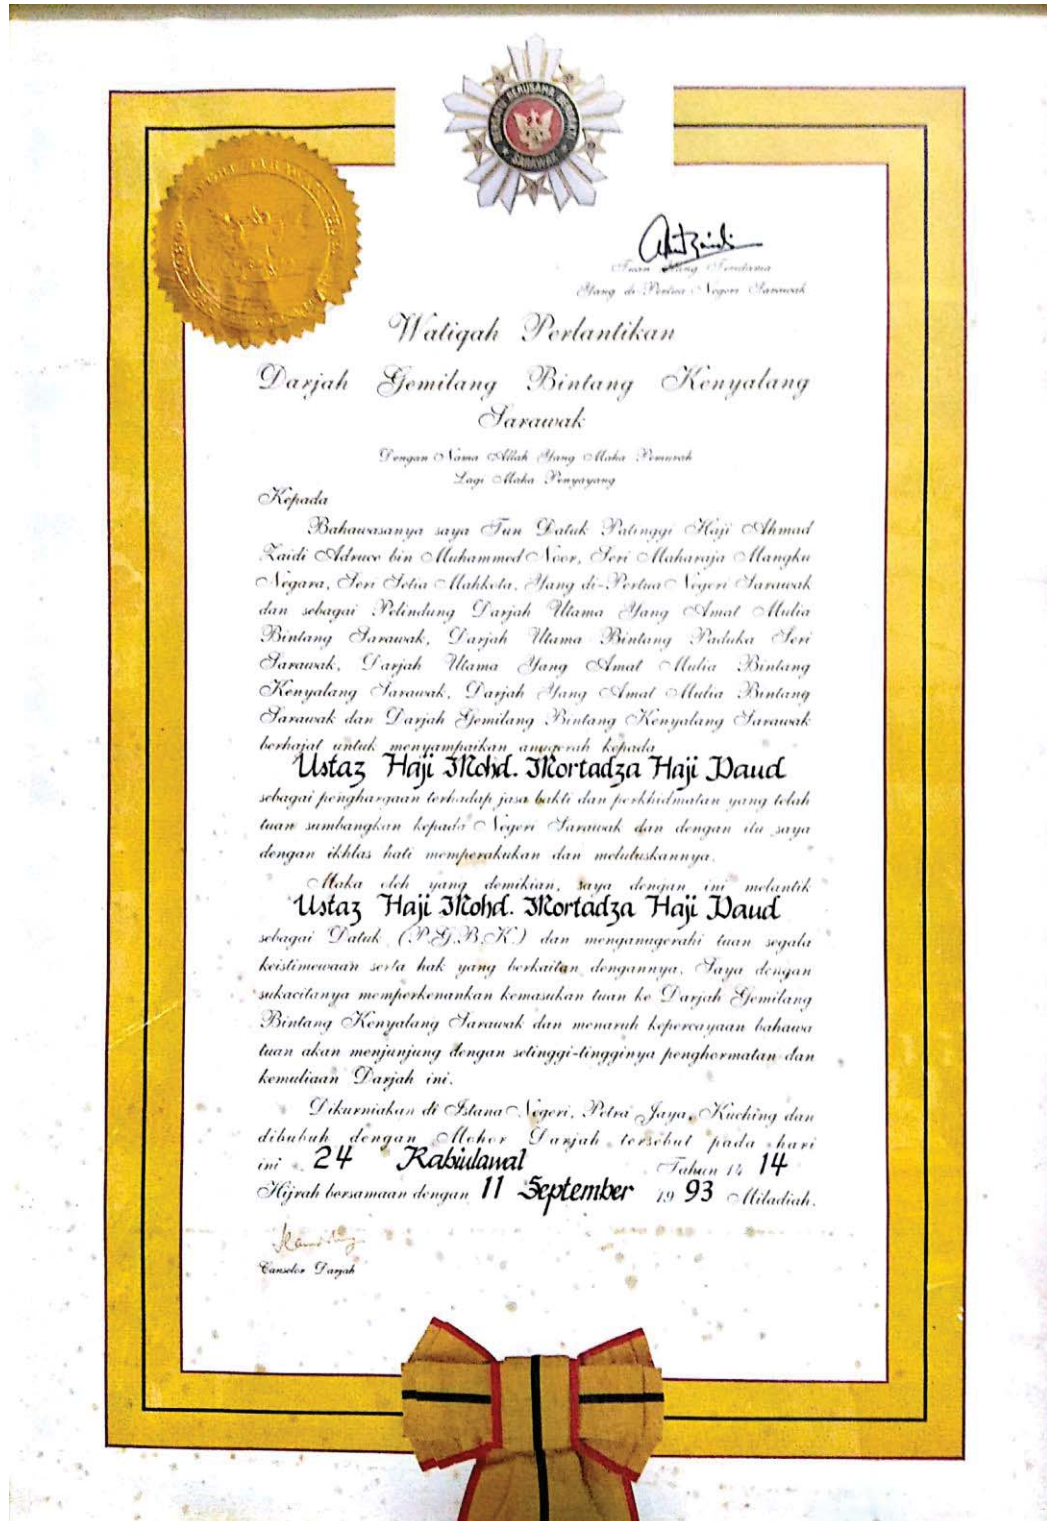 BERSATU BERUSAHA BERBAKTI
SARAWAK
Tuan Yang Terutama
Yang di-Pertua Negeri Sarawak
Watiqah Perlantikan
Darjah Gemilang Bintang Kenyalang
Sarawak
Dengan Nama Allah Yang Maha Pemurah
Lagi Maha Penyayang
Kepada
Bahawasanya saya Tun Datuk Patinggi Haji Ahmad
Zaidi Adruce bin Muhammed Noor, Seri Maharaja Mangku
Negara, Seri Setia Mahkota, Yang di-Pertua Negeri Sarawak
dan sebagai Pelindung Darjah Utama Yang Amat Mulia
Bintang Sarawak, Darjah Utama Bintang Paduka Seri
Sarawak, Darjah Utama Yang Amat Mulia Bintang
Kenyalang Sarawak, Darjah Yang Amat Mulia Bintang
Sarawak dan Darjah Gemilang Bintang Kenyalang Sarawak
berhajat untuk menyampaikan anugerah kepada
Ustaz Haji Mohd. Mortadza Haji Daud
sebagai penghargaan terhadap jasa bakti dan perkhidmatan yang telah
tuan sumbangkan kepada Negeri Sarawak dan dengan itu saya
dengan ikhlas hati memperakukan dan meluluskannya.
Maka oleh yang demikian, saya dengan ini melantik
Ustaz Haji Mohd. Mortadza Haji Daud
sebagai Datuk (P.G.B.K.) dan menganugerahi tuan segala
keistimewaan serta hak yang berkaitan dengannya. Saya dengan
sukacitanya memperkenankan kemasukan tuan ke Darjah Gemilang
Bintang Kenyalang Sarawak dan menaruh kepercayaan bahawa
tuan akan menjunjung dengan setinggi-tingginya penghormatan dan
kemuliaan Darjah ini.
Dikurniakan di Istana Negeri, Petra Jaya, Kuching dan
dibubuh dengan Mohor Darjah tersebut pada hari
ini 24 Rabiulawal Tahun 14 14
Hijrah bersamaan dengan 11 September 19 93 Miladiah.
Canselor Darjah